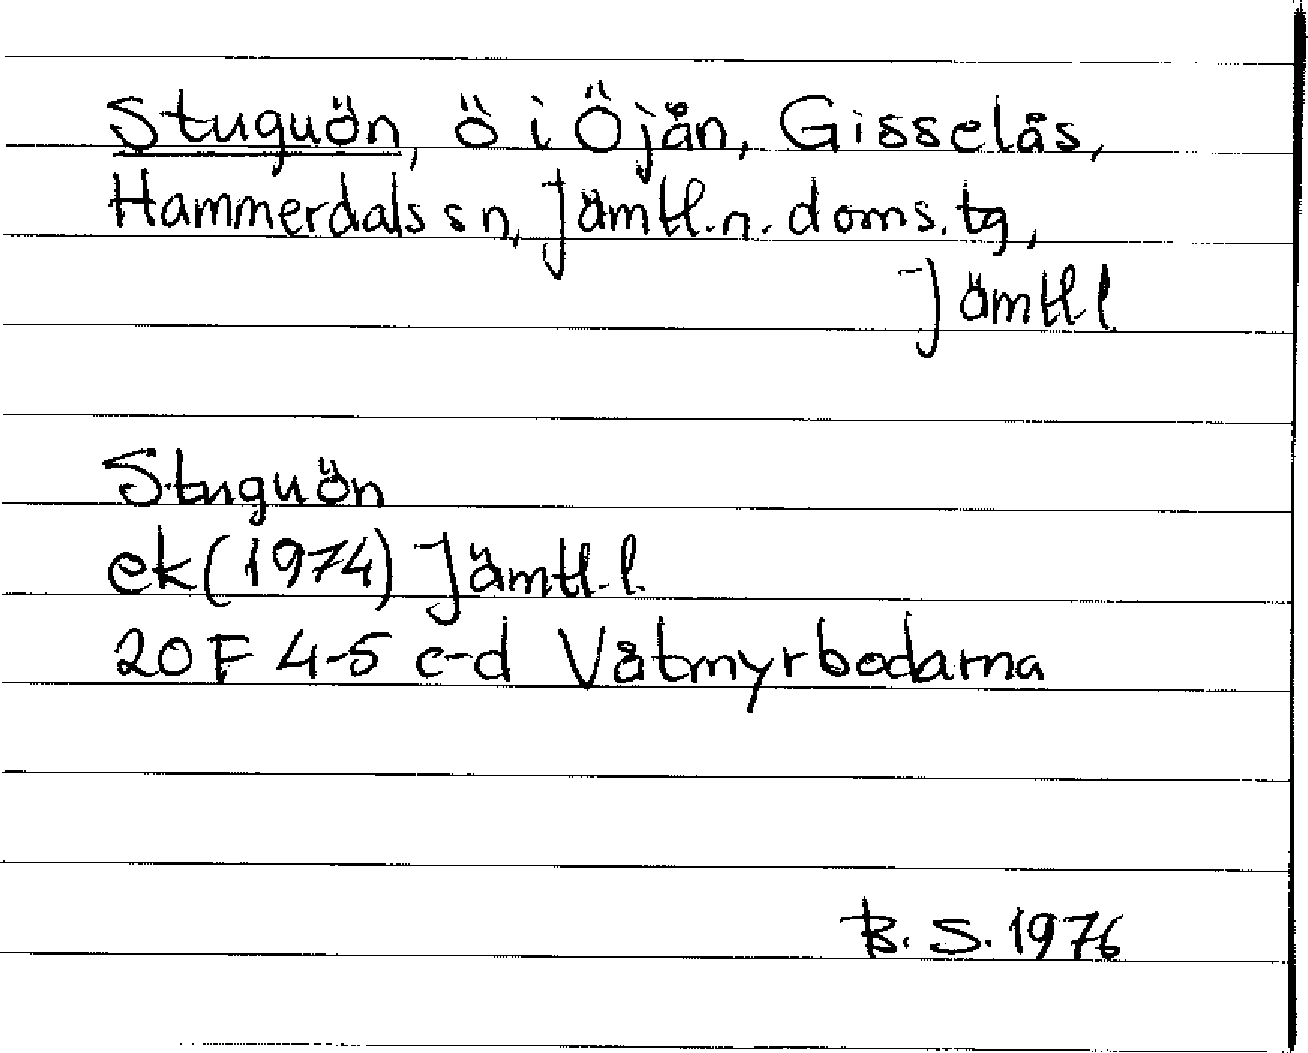 Stuguön, ö i Öjån, Gisselås,
Hammerdals sn, Jämtl.n.doms.tg,
Jämtl l
Stuguön
ek (1974) Jämtl.l.
20 F 4-5 c-d Våtmyrbodarna
B. S. 1976